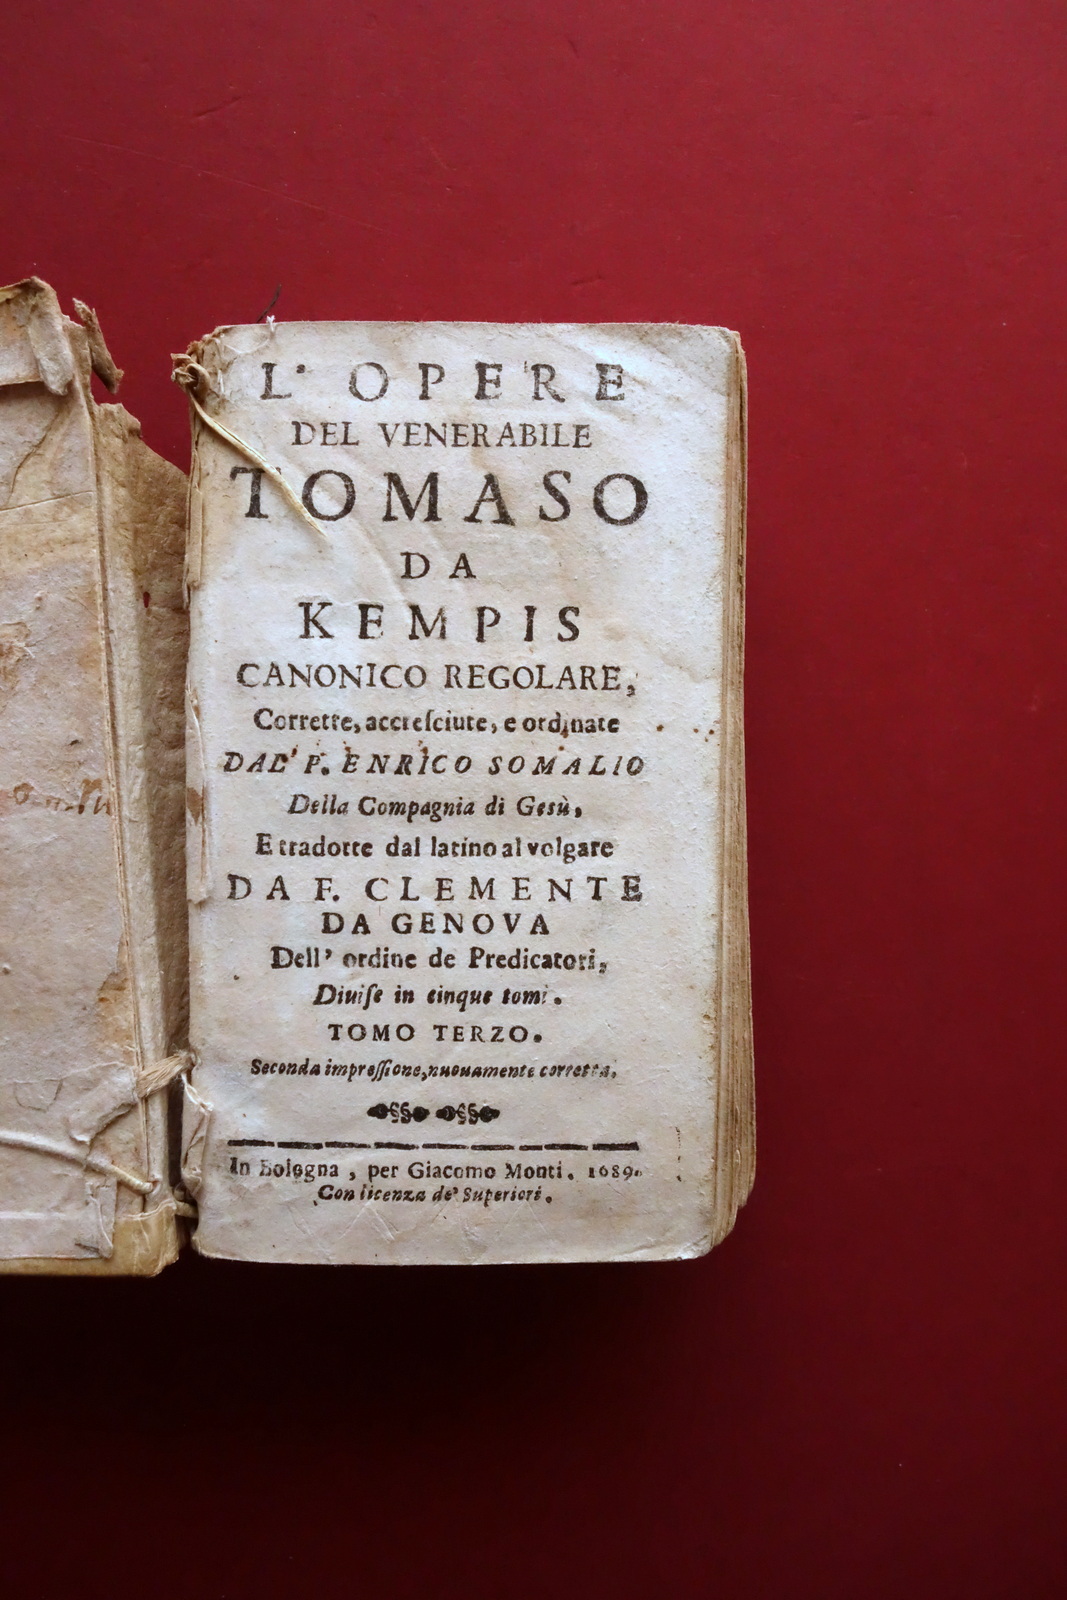 L' OPERE
DEL VENERABILE
TOMASO
DA
KEMPIS
CANONICO REGOLARE,
Corrette, accreſciute, e ordinate
DAL' P. ENRICO SOMALIO
Della Compagnia di Gesù,
E tradotte dal latino al volgare
DA F. CLEMENTE
DA GENOVA
Dell' ordine de Predicatori,
Diuiſe in cinque tomi.
TOMO TERZO.
Seconda impreſſione, nuouamente corretta.
In Bologna, per Giacomo Monti. 1689.
Con licenza de' Superiori.